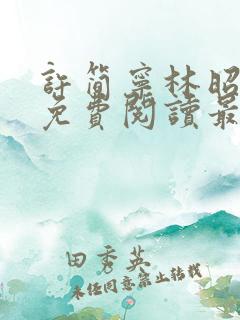 許簡寧林昭
免費閱讀最
田秀英
未经同意禁止转载